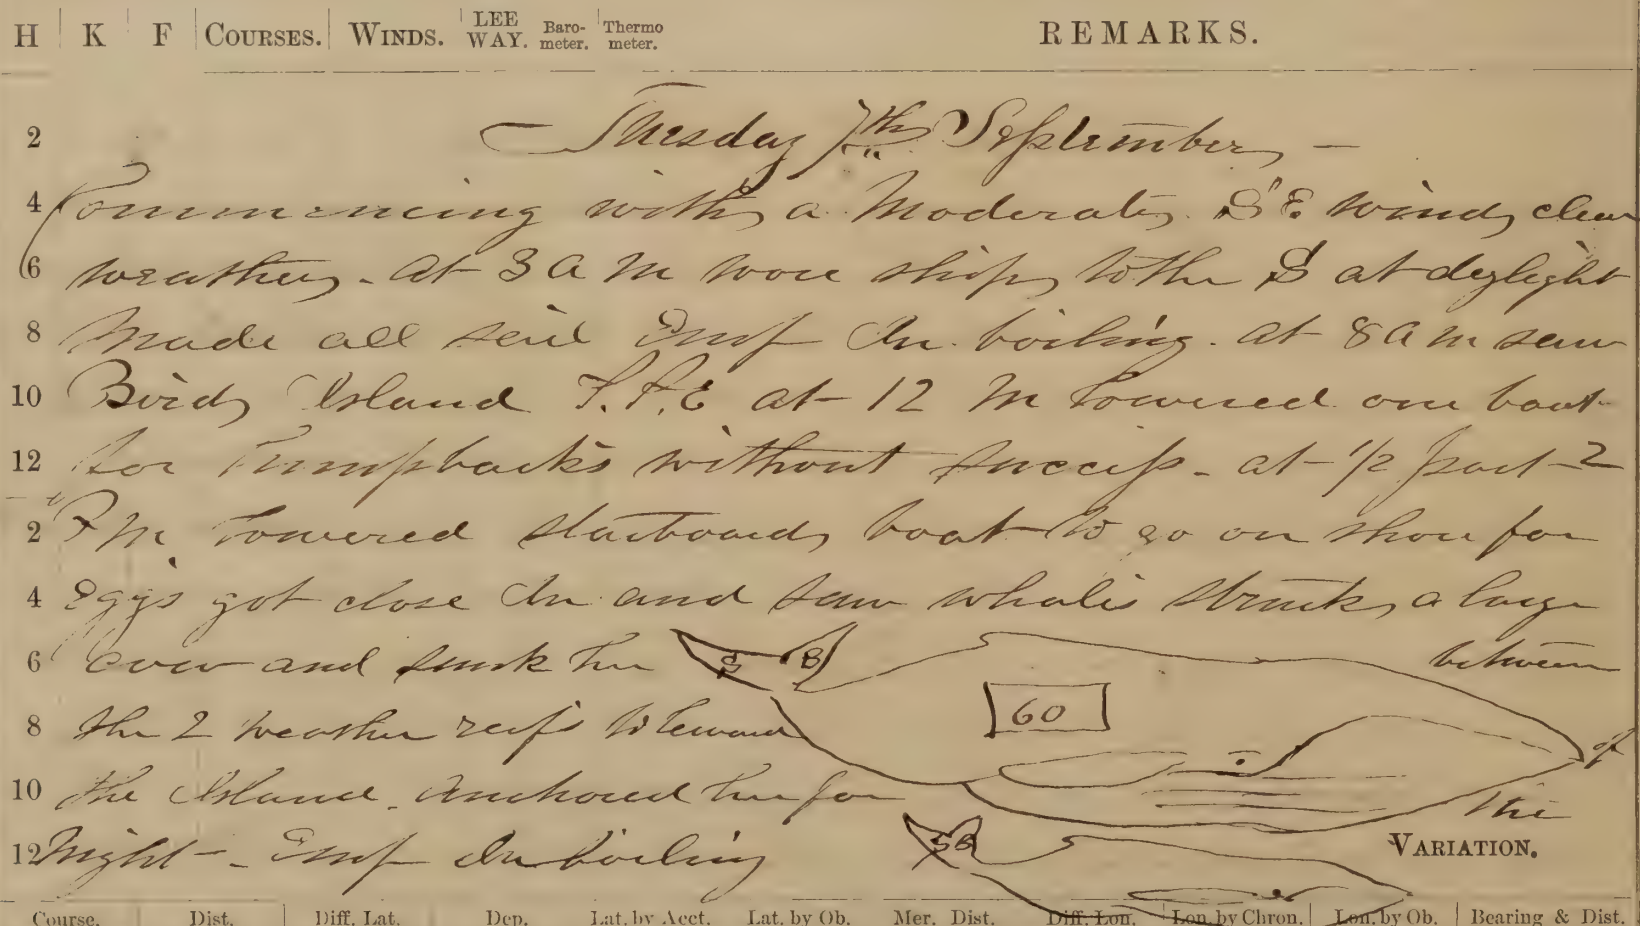 H K F COURSES. WINDS. LEE WAY. Baro-meter. Thermo meter. REMARKS.
Tuesday 7th September
2
4 Commencing with a Moderate S E. wind, clear
6 weather. at 3 A M wore ship to the S at dylight
8 Made all sail Emp In boiling. at 8 A M saw
10 Bird Island S.S.E at 12 M Lowered one boat
12 for Humpbacks without success. at 1/2 past 2
2 P M. Lowered starboard boat to go on shore for
4 Eggs got close In and saw whales struck a large
6 cow and sunk her S B between
8 the 2 weather reefs to leward 60 of
10 the Island. Anchored her for the
12 Night. Emp In boiling S B VARIATION.
Course. Dist. Diff. Lat. Dep. Lat. by Acct. Lat. by Ob. Mer. Dist. Diff. Lon. Lon. by Chron. Lon. by Ob. Bearing & Dist.